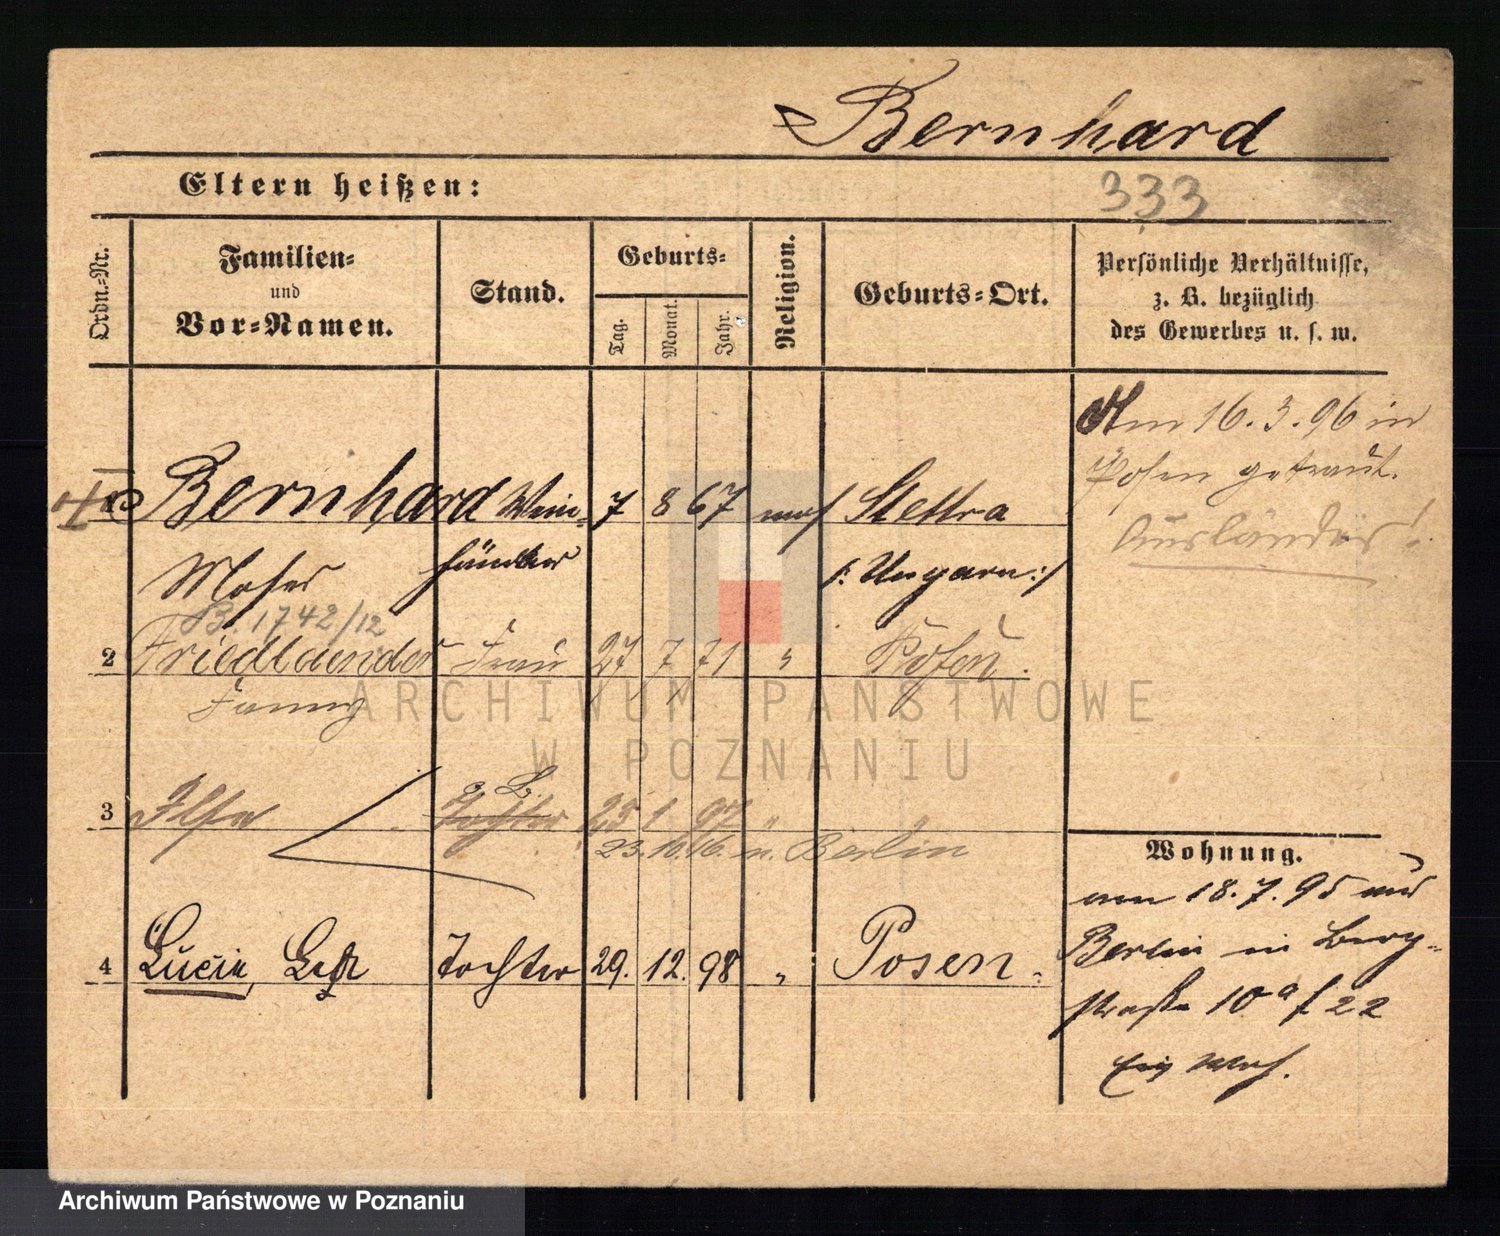 Bernhard
Eltern heißen:
333
Ordn.-Nr.
Familien-
und
Vor-Namen.
Stand.
Geburts-
Tag.
Monat.
Jahr.
Religion.
Geburts-Ort.
Persönliche Verhältnisse,
z. B. bezüglich
des Gewerbes u. s. w.
Am 16.3.96 in
Posen getraut.
Ausländer!
Bernhard Wein- 7 8 67 mos Stettra
Moses händler /: Ungarn :/
B. 1742/12
2 Friedlaender Frau 27 7 71 " Posen.
Fanny
ARCHIWUM PAŃSTWOWE
W POZNANIU
3 Ilse Tochter 25 1 97 "
23.10.16. n. Berlin
4 Lucie, Tochter 29. 12. 98 " Posen.
Wohnung.
am 18.7.95 aus
Berlin in Berg-
straße 10a
Archiwum Państwowe w Poznaniu